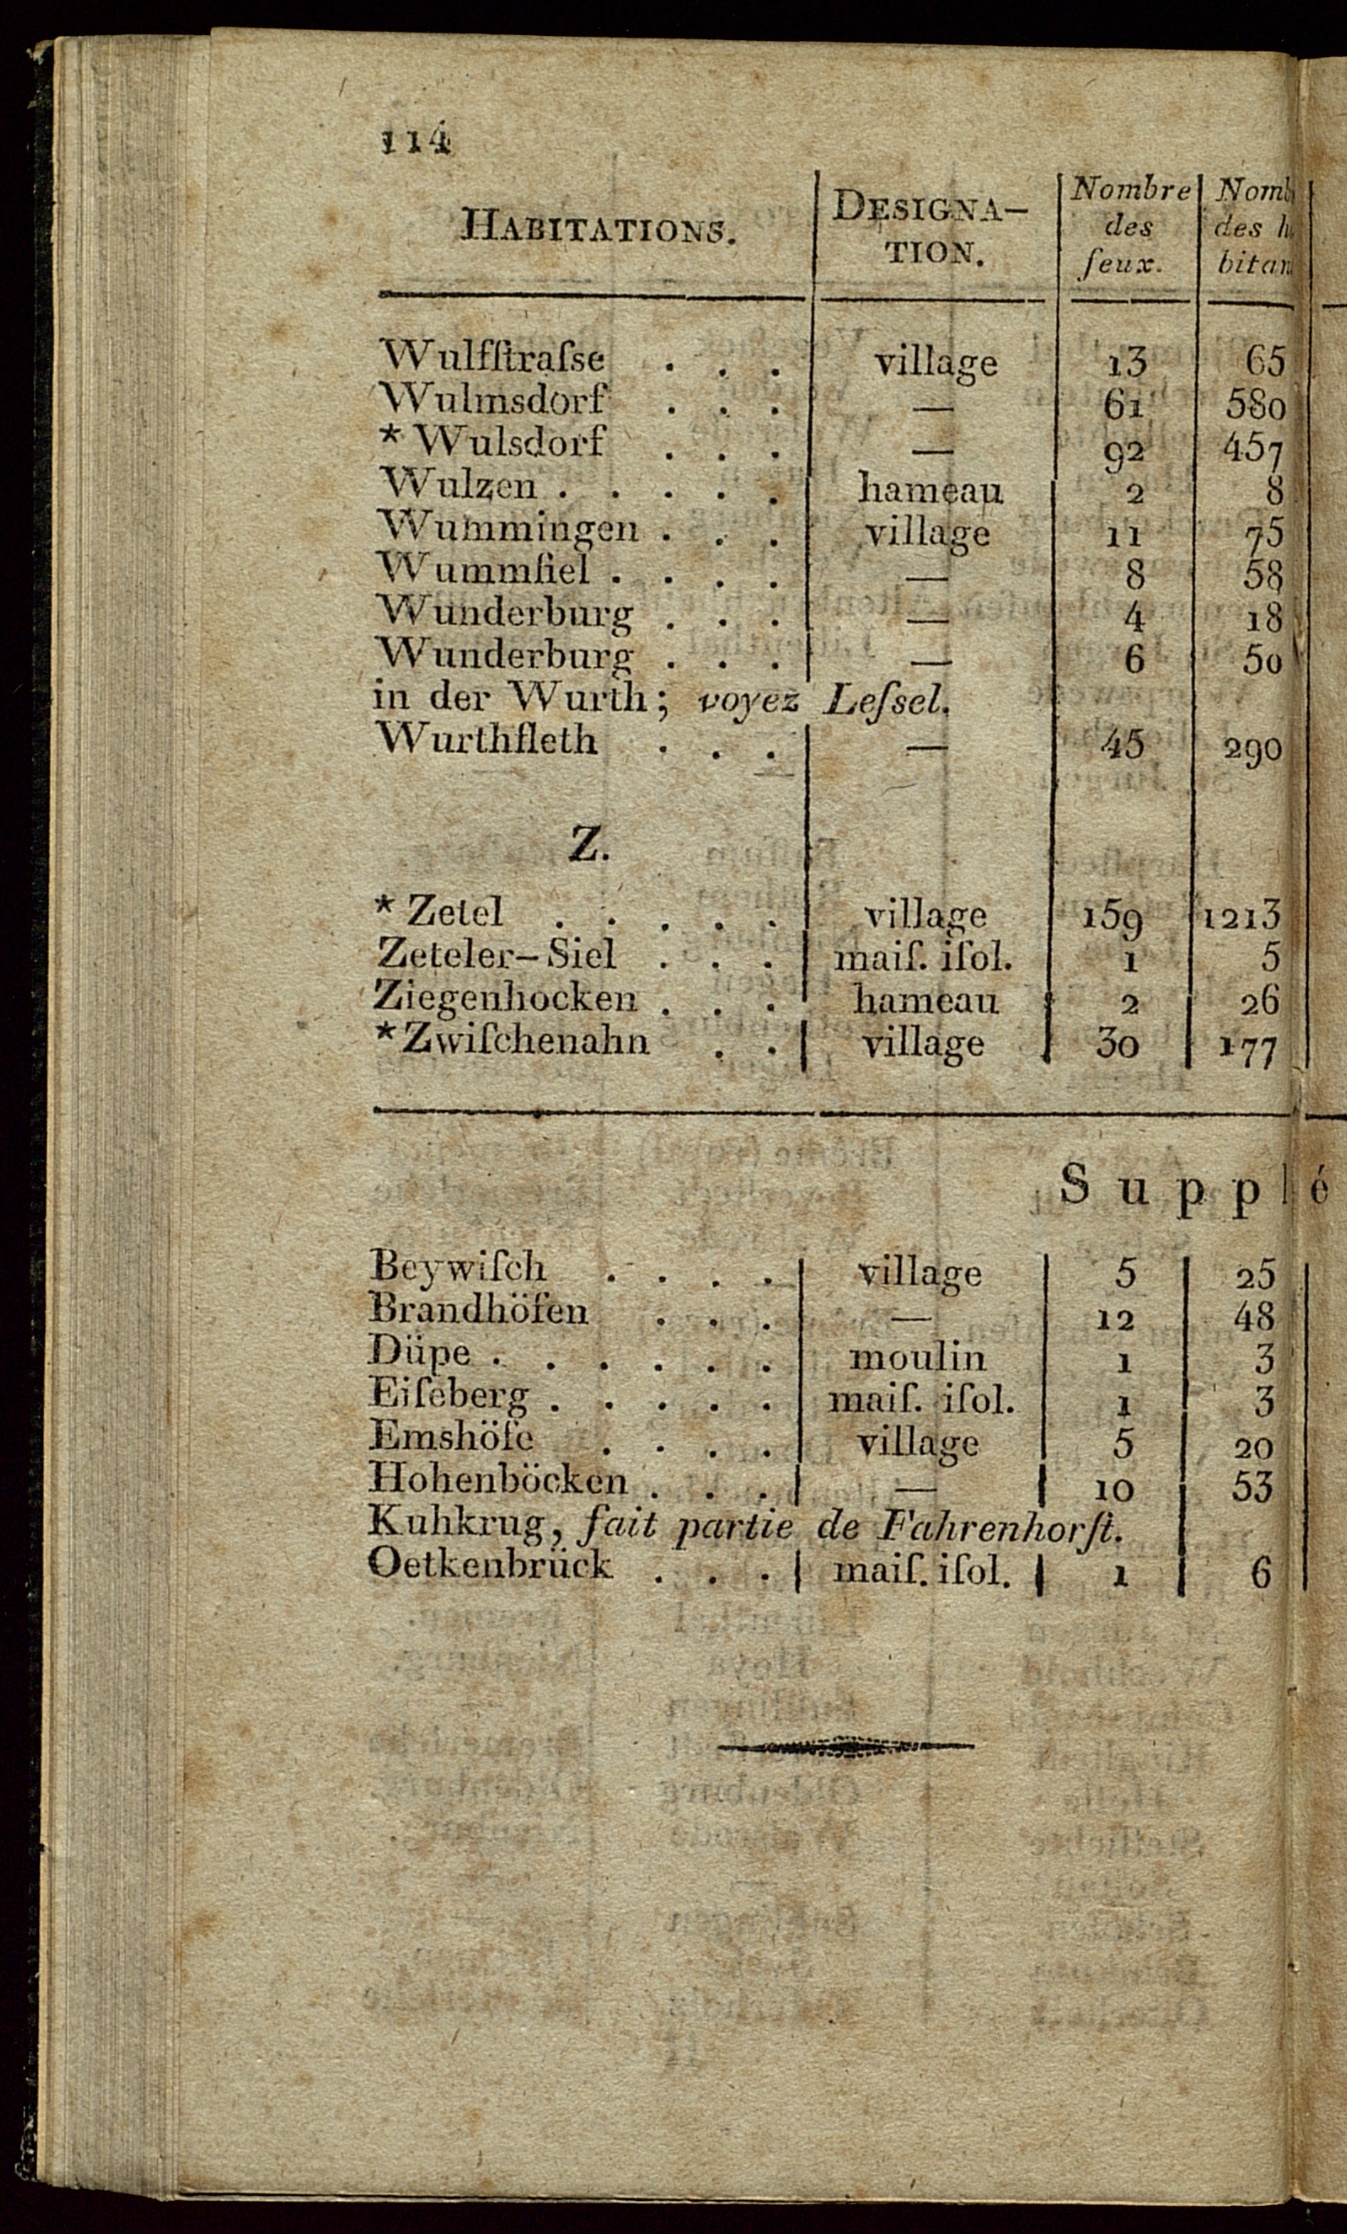 114
HABITATIONS. DESIGNA- Nombre
TION. des des
ſeux.
Wulfſtraſse . . . village 13 65
Wulmsdorf . . . — 61 580
* Wulsdorf . . . — 92 457
Wulzen . . . . . hameau 2 8
Wummingen . . . village 11 75
Wummſiel . . . . — 8 58
Wunderburg . . . — 4 18
Wunderburg . . . — 6 50
in der Wurth; voyez Leſsel.
Wurthfleth . . . — 45 290
Z.
* Zetel . . . . . village 159 1213
Zeteler-Siel . . . maiſ. iſol. 1 5
Ziegenhocken . . . hameau 2 26
* Zwiſchenahn . . village 30 177
Supplé
Beywiſch . . . . village 5 25
Brandhöfen . . . — 12 48
Düpe . . . . . . moulin 1 3
Eiſeberg . . . . . maiſ. iſol. 1 3
Emshöfe . . . . village 5 20
Hohenböcken . . . — 10 53
Kuhkrug, fait partie de Fahrenhorſt.
Oetkenbrück . . . maiſ. iſol. 1 6